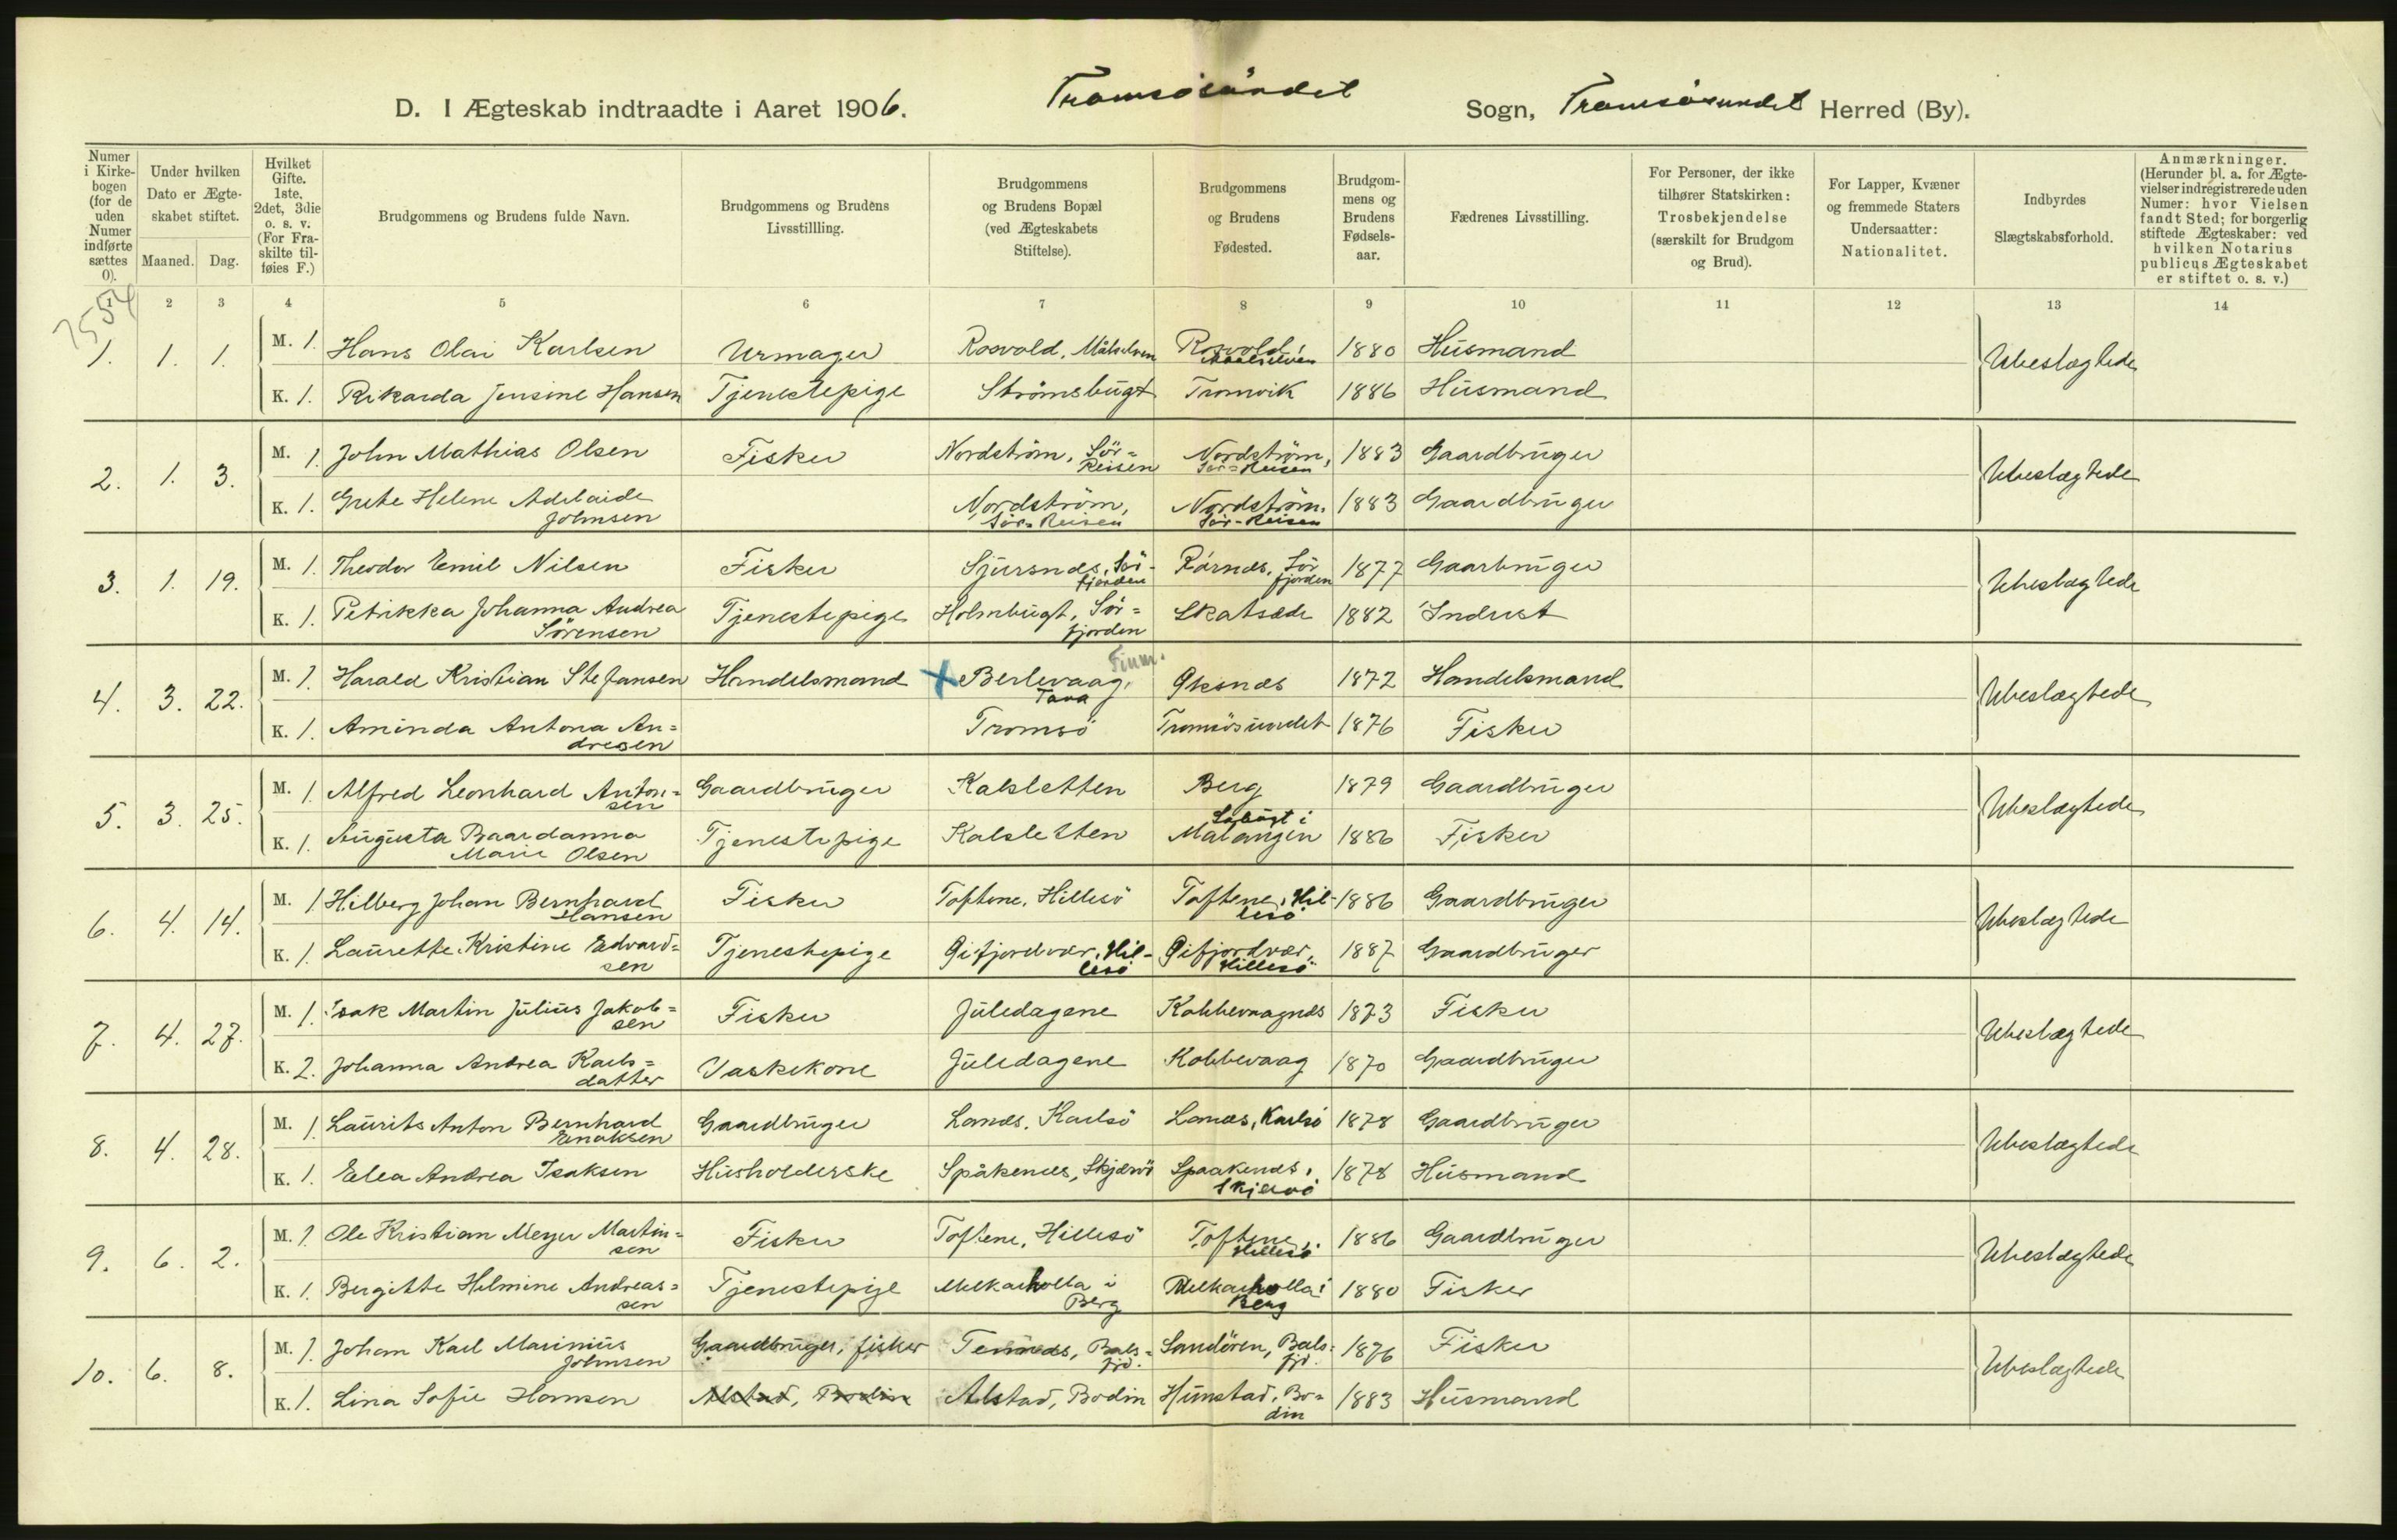 D. I Ægteskab indtraadte i Aaret 1906. Tromsøsundet Sogn, Tromsøsundet Herred (By).
Numer i Kirkebogen (for de uden Numer indførte sættes 0).
Under hvilken Dato er Ægteskabet stiftet.
Maaned. Dag.
Hvilket Gifte. 1ste, 2det, 3die o. s. v. (For Fraskilte tilføies F.)
Brudgommens og Brudens fulde Navn.
Brudgommens og Brudens Livsstillling.
Brudgommens og Brudens Bopæl (ved Ægteskabets Stiftelse).
Brudgommens og Brudens Fødested.
Brudgommens og Brudens Fødselsaar.
Fædrenes Livsstilling.
For Personer, der ikke tilhører Statskirken: Trosbekjendelse (særskilt for Brudgom og Brud).
For Lapper, Kvæner og fremmede Staters Undersaatter: Nationalitet.
Indbyrdes Slægtskabsforhold.
Anmærkninger. (Herunder bl. a. for Ægtevielser indregistrerede uden Numer: hvor Vielsen fandt Sted; for borgerlig stiftede Ægteskaber: ved hvilken Notarius publicus Ægteskabet er stiftet o. s. v.)
1 2 3 4 5 6 7 8 9 10 11 12 13 14
1. 1. 1. M. 1. Hans Olai Karlsen Urmager Rosvold, Målselven Rosvold, Maalselven 1880 Husmand Ubeslægtede
K. 1. Rikarda Jensine Hansen Tjenestepige Strømsbugt Tromvik 1886 Husmand
2. 1. 3. M. 1. John Mathias Olsen Fisker Nordström, Sör=Reisen Nordström, Sör=Reisen 1883 Gaardbruger Ubeslægtede
K. 1. Grete Helene Adelaide Johnsen Nordström, Sör=Reisen Nordström, Sör-Reisen 1883 Gaardbruger
3. 1. 19. M. 1. Theodor Emil Nilsen Fisker Sjursnes, Sörfjorden Rörnes, Sörfjorden 1877 Gaarbruger Ubeslægtede
K. 1. Petrikka Johanna Andrea Sörensen Tjenestepige Holmbugt, Sör=fjorden Skatsede 1882 Inderst
4. 3. 22. M. 1. Harald Kristian Stefansen Handelsmand Berlevaag, Tana Finm. Øksnes 1872 Handelsmand Ubeslægtede
K. 1. Aminda Antona An=dresen Tromsö Tromsösundet 1876 Fisker
5. 3. 25. M. 1. Alfred Leonhard Anton=sen Gaardbruger Kalsletten Berg 1879 Gaardbruger Ubeslægtede
K. 1. Augusta Baardanna Marie Olsen Tjenestepige Kalsletten Malangen 1886 Fisker
6. 4. 14. M. 1. Hilberg Johan Bernhard Hansen Fisker Toftene, Hillesö Toftene, Hil-lesö 1886 Gaardbruger Ubeslægtede
K. 1. Laurette Kristine Edvard=sen Tjenestepige Gifjordvær, Hil-lesö Gifjordvær, Hillesö 1887 Gaardbruger
7. 4. 27. M. 1. Isak Martin Julius Jakob=sen Fisker Juledagene Kobbevaagnes 1873 Fisker Ubeslægtede
K. 2. Johanna Andrea Karls=datter Vaskekone Juledagene Kobbevaag 1870 Gaardbruger
8. 4. 28. M. 1. Laurits Anton Bernhard Enoksen Gaardbruger Lanes, Karlsö Lanes, Karlsö 1878 Gaardbruger Ubeslægtede
K. 1. Elea Andrea Isaksen Husholderske Spåkenes, Skjervö Spaakenes, Skjervö 1878 Husmand
9. 6. 2. M. 1. Ole Kristian Meyer Martin=sen Fisker Toftene, Hillesö Toftene, Hillesö 1886 Gaardbruger Ubeslægtede
K. 1. Bergitte Helmine Andreas=sen Tjenestepige Melkarholla i Berg Melkarholla i Berg 1880 Fisker
10. 6. 8. M. 1. Johan Karl Marinius Johnsen Gaardbruger, fisker Tennes, Bals=fjd. Sandören, Bals=fjd. 1876 Fisker Ubeslægtede
K. 1. Lina Sofie Hansen Alstad, Bodin Alstad, Bodin Hunstad, Bo=din 1883 Husmand